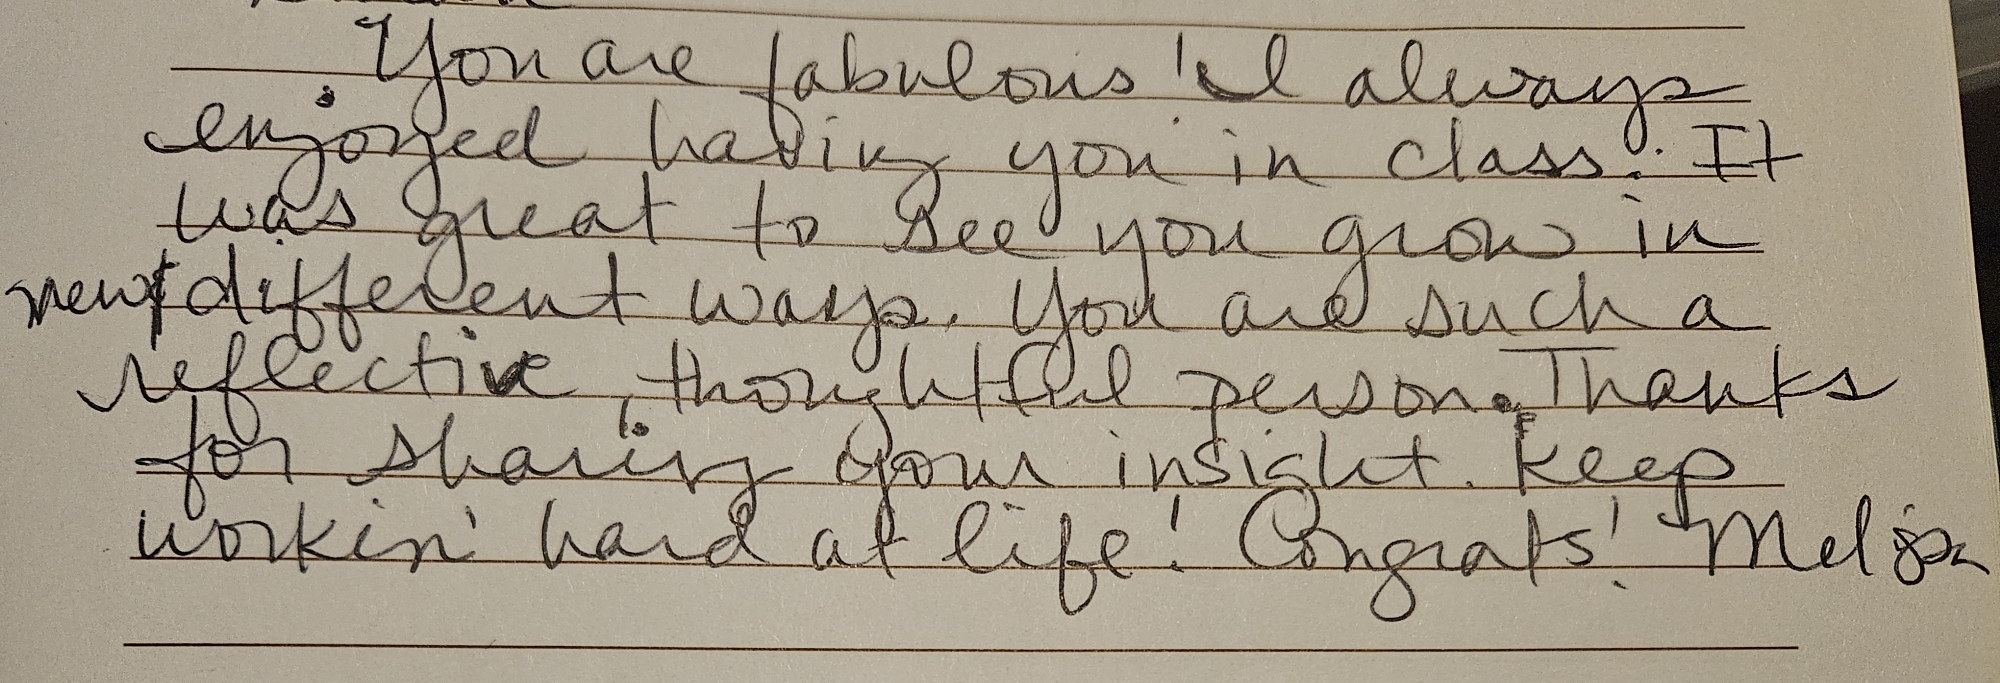 You are fabulous! I always
enjoyed having you in class. It
was great to see you grow in
new & different ways. You are such a
reflective, thoughtful person. Thanks
for sharing your insight. Keep
workin' hard at life! Congrats! Melissa